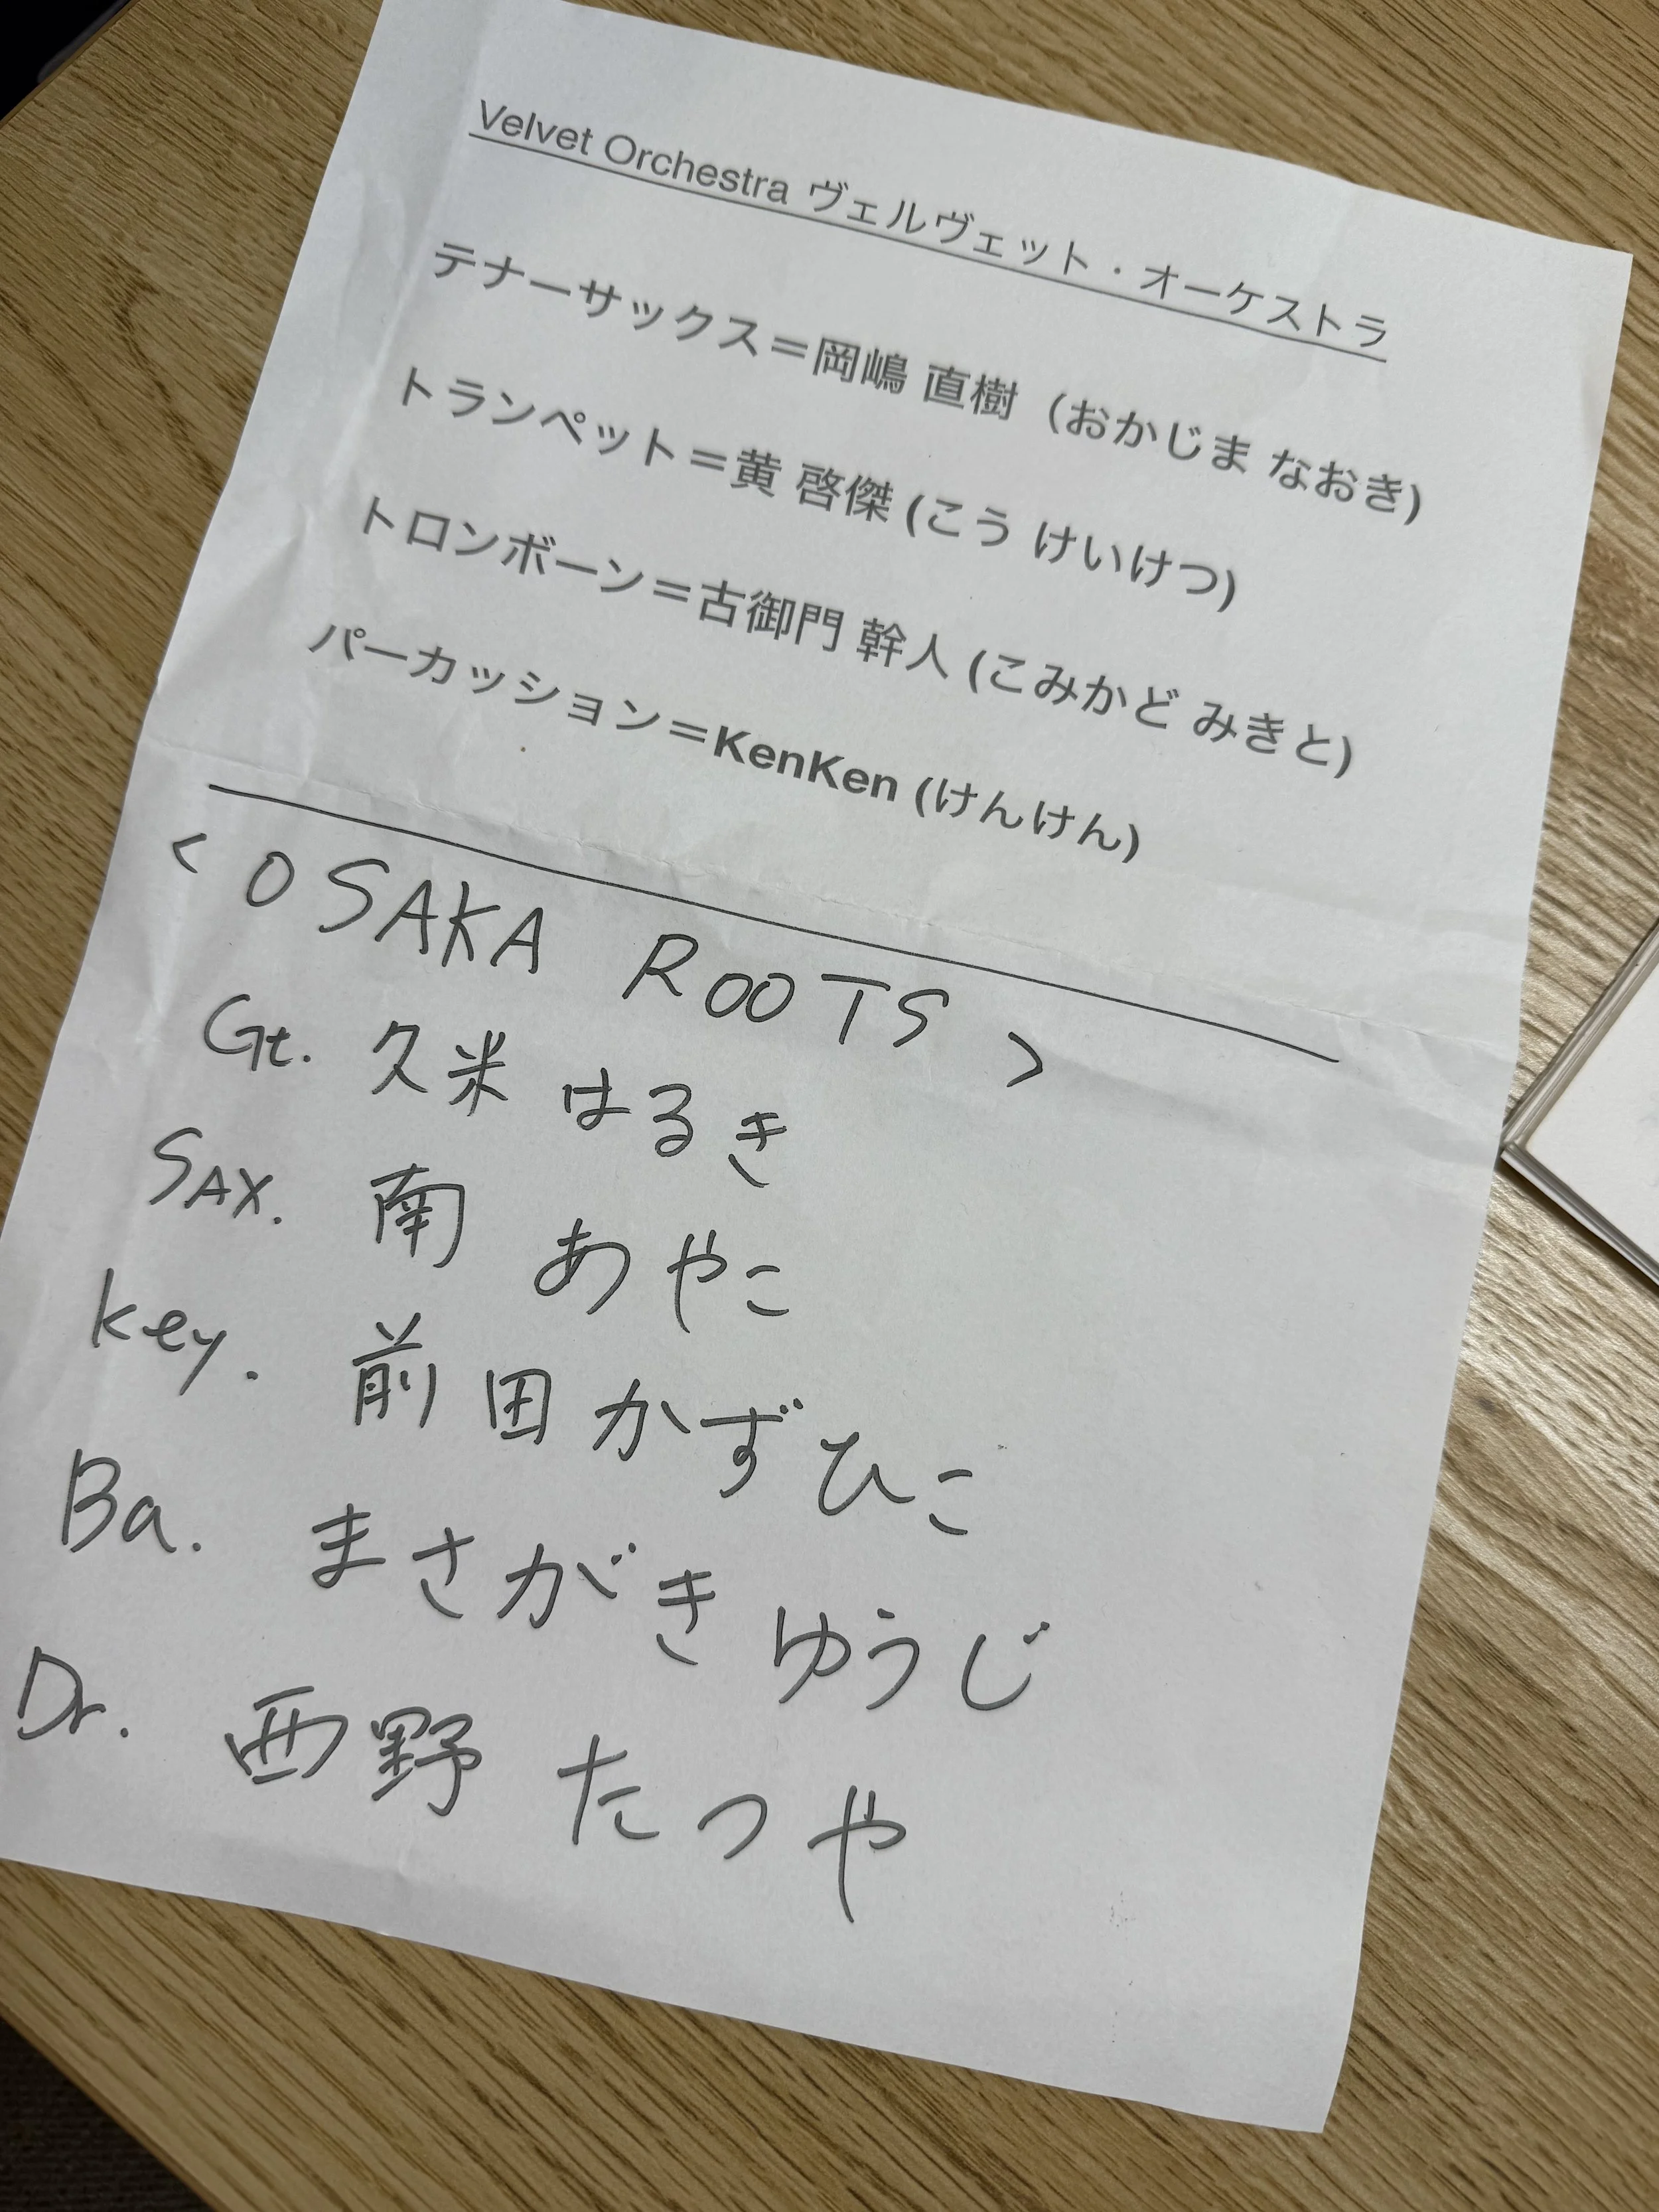 Velvet Orchestra ヴェルヴェット・オーケストラ
テナーサックス＝岡嶋 直樹（おかじま なおき)
トランペット＝黄 啓傑 (こう けいけつ)
トロンボーン＝古御門 幹人 (こみかど みきと)
パーカッション＝KenKen (けんけん)
< OSAKA ROOTS >
Gt. 久米 はるき
SAX. 南 あやこ
key. 前田 かずひこ
Ba. まさがき ゆうじ
Dr. 西野 たつや